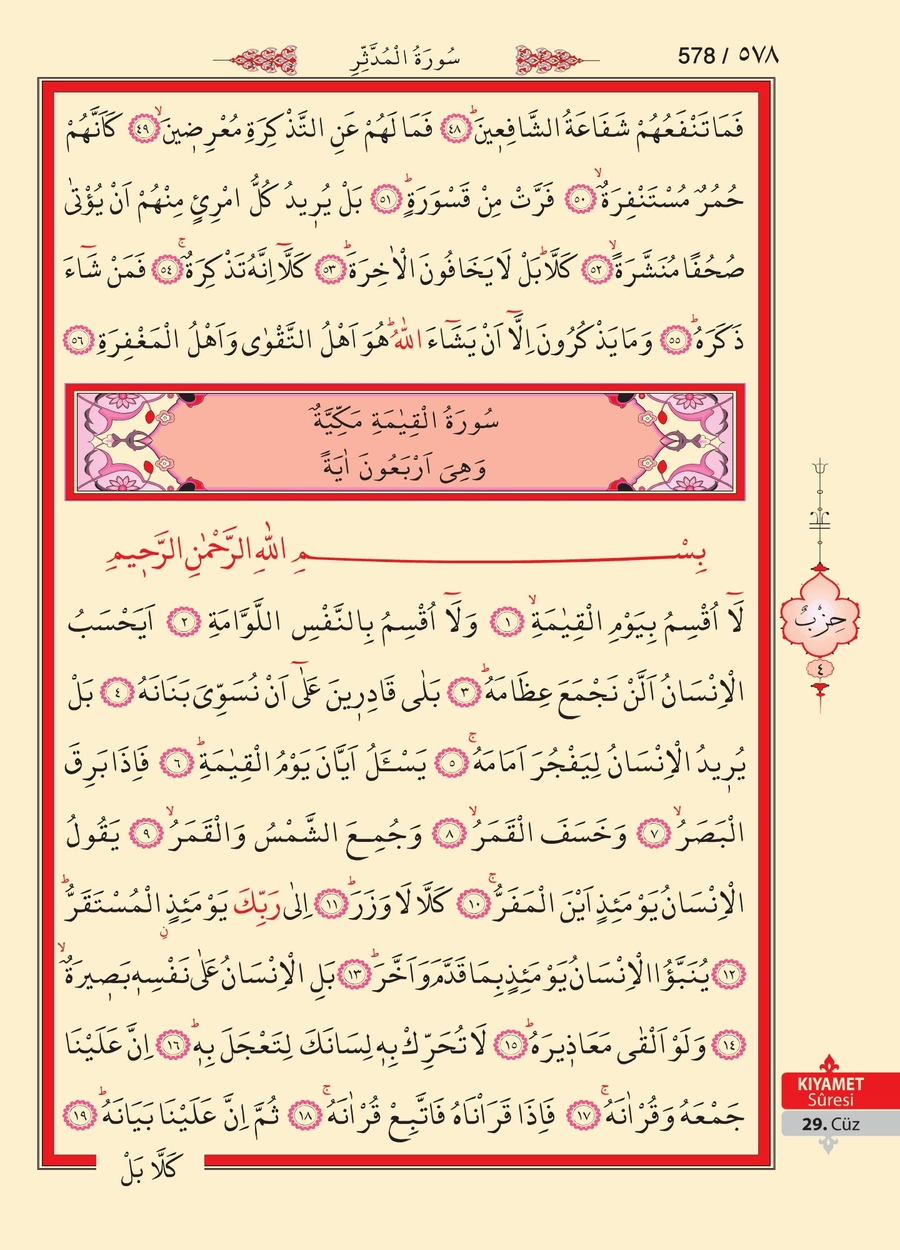 578 / ٥٧٨
سُورَةُ الْمُدَّثِّرِ
فَمَا تَنْفَعُهُمْ شَفَاعَةُ الشَّافِع۪ينَۜ ﴿٤٨﴾ فَمَا لَهُمْ عَنِ التَّذْكِرَةِ مُعْرِض۪ينَۙ ﴿٤٩﴾ كَاَنَّهُمْ
حُمُرٌ مُسْتَنْفِرَةٌۙ ﴿٥٠﴾ فَرَّتْ مِنْ قَسْوَرَةٍۜ ﴿٥١﴾ بَلْ يُر۪يدُ كُلُّ امْرِئٍ مِنْهُمْ اَنْ يُؤْتٰى
صُحُفًا مُنَشَّرَةًۙ ﴿٥٢﴾ كَلَّاۜ بَلْ لَا يَخَافُونَ الْاٰخِرَةَۜ ﴿٥٣﴾ كَلَّٓا اِنَّهُ تَذْكِرَةٌۚ ﴿٥٤﴾ فَمَنْ شَٓاءَ
ذَكَرَهُۜ ﴿٥٥﴾ وَمَا يَذْكُرُونَ اِلَّٓا اَنْ يَشَٓاءَ اللّٰهُۜ هُوَ اَهْلُ التَّقْوٰى وَاَهْلُ الْمَغْفِرَةِ ﴿٥٦﴾
سُورَةُ الْقِيٰمَةِ مَكِّيَّةٌ
وَهِىَ اَرْبَعُونَ اٰيَةً
بِسْمِ اللّٰهِ الرَّحْمٰنِ الرَّح۪يمِ
لَٓا اُقْسِمُ بِيَوْمِ الْقِيٰمَةِۙ ﴿١﴾ وَلَٓا اُقْسِمُ بِالنَّفْسِ اللَّوَّامَةِ ﴿٢﴾ اَيَحْسَبُ
الْاِنْسَانُ اَلَّنْ نَجْمَعَ عِظَامَهُۜ ﴿٣﴾ بَلٰى قَادِر۪ينَ عَلٰٓى اَنْ نُسَوِّىَ بَنَانَهُ ﴿٤﴾ بَلْ
يُر۪يدُ الْاِنْسَانُ لِيَفْجُرَ اَمَامَهُۚ ﴿٥﴾ يَسْـَٔلُ اَيَّانَ يَوْمُ الْقِيٰمَةِۜ ﴿٦﴾ فَاِذَا بَرِقَ
الْبَصَرُۙ ﴿٧﴾ وَخَسَفَ الْقَمَرُۙ ﴿٨﴾ وَجُمِعَ الشَّمْسُ وَالْقَمَرُۙ ﴿٩﴾ يَقُولُ
الْاِنْسَانُ يَوْمَئِذٍ اَيْنَ الْمَفَرُّۚ ﴿١٠﴾ كَلَّا لَا وَزَرَۜ ﴿١١﴾ اِلٰى رَبِّكَ يَوْمَئِذٍ ࣙالْمُسْتَقَرُّۜ
﴿١٢﴾ يُنَبَّؤُا الْاِنْسَانُ يَوْمَئِذٍ بِمَا قَدَّمَ وَاَخَّرَۜ ﴿١٣﴾ بَلِ الْاِنْسَانُ عَلٰى نَفْسِه۪ بَص۪يرَةٌۙ
﴿١٤﴾ وَلَوْ اَلْقٰى مَعَاذ۪يرَهُۜ ﴿١٥﴾ لَا تُحَرِّكْ بِه۪ لِسَانَكَ لِتَعْجَلَ بِه۪ۜ ﴿١٦﴾ اِنَّ عَلَيْنَا
جَمْعَهُ وَقُرْاٰنَهُۚ ﴿١٧﴾ فَاِذَا قَرَأْنَاهُ فَاتَّبِعْ قُرْاٰنَهُۚ ﴿١٨﴾ ثُمَّ اِنَّ عَلَيْنَا بَيَانَهُۜ ﴿١٩﴾
كَلَّا بَلْ
حِزْبٌ
٤
KIYAMET
Sûresi
29. Cüz